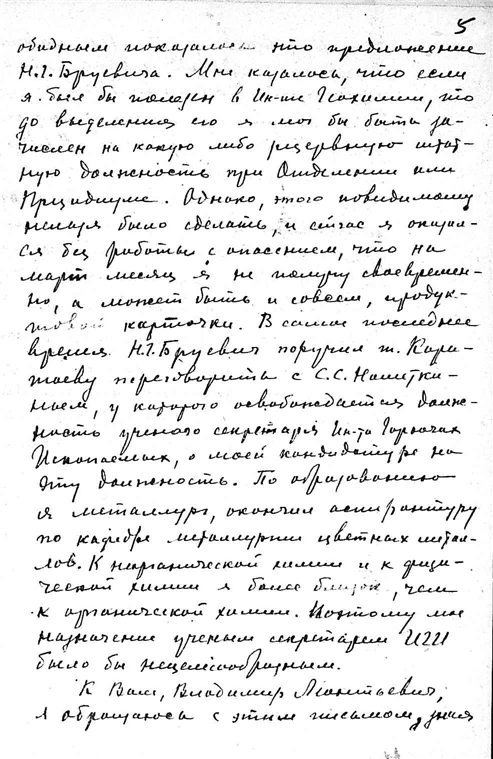 5
обидным показалось это предложение
Н.Г. Бруевича. Мне казалось, что если
я был бы полезен в Ин-те Геохимии, то
до выделения его я мог бы быть за-
числен на какую либо резервную штат-
ную должность при Отделении или
Президиуме. Однако, этого повидимому
нельзя было сделать, и сейчас я оказал-
ся без работы с опасением, что на
март месяц я не получу своевремен-
но, а может быть и совсем, продук-
товой карточки. В самое последнее
время Н.Г. Бруевич поручил т. Кара-
таеву переговорить с С.С. Наметки-
ным, у которого освобождается долж-
ность ученого секретаря Ин-та Горючих
Ископаемых, о моей кандидатуре на
эту должность. По образованию
я металлург, окончил аспирантуру
по кафедре металлургии цветных метал-
лов. К неорганической химии и к физи-
ческой химии я более близок, чем
к органической химии. Поэтому мое
назначение ученым секретарем ИГИ
было бы нецелесообразным.
К Вам, Владимир Леонтьевич,
я обращаюсь с этим письмом, зная